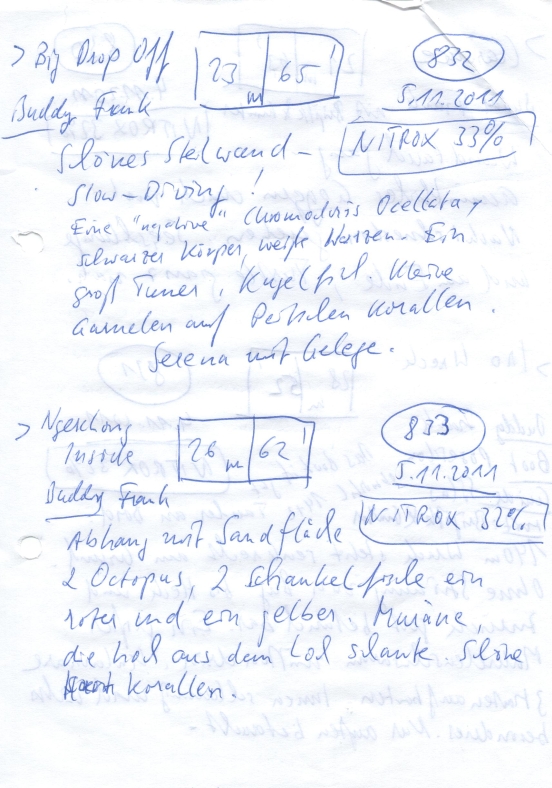 > Big Drop Off 23 m 65' 832
5.11.2011
Buddy Frank
NITROX 33%
Schönes Steilwand –
Slow-Driving!
Eine "negative" Chromodoris Ocellata,
schwarzer Körper, weiße Warzen. Ein
groß Tuner, Kugelfisch. Kleine
Garnelen auf Peitschen Korallen.
Serena mit Gelege.
> Ngerchong
Inside 26 m 62' 833
5.11.2011
Buddy Frank
NITROX 32%
Abhang mit Sandfläche
2 Octopus, 2 Schaukelfische ein
roter und ein gelber. Muräne,
die hoch aus dem Loch schaute. Schöne
Korallen.